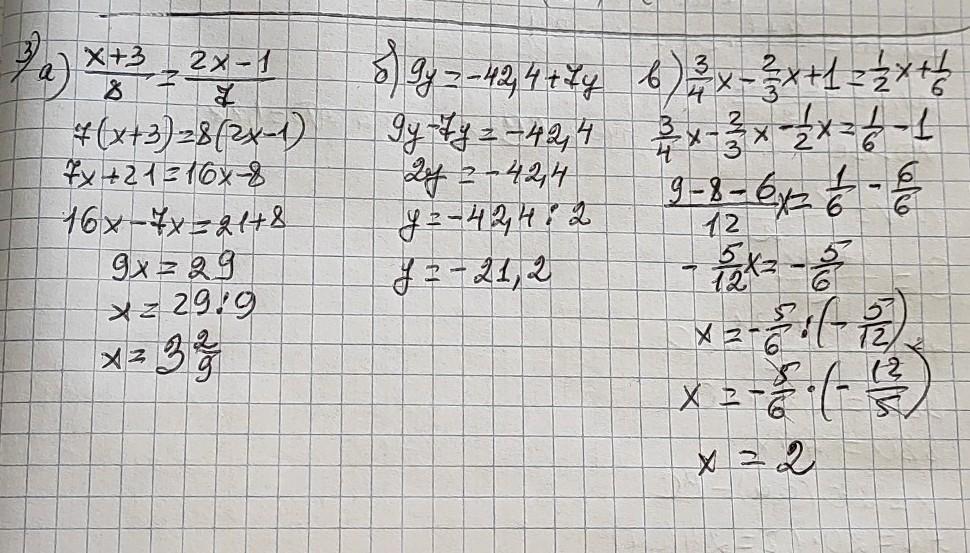 3) а) (x+3)/8 = (2x-1)/7
7(x+3)=8(2x-1)
7x+21=16x-8
16x-7x=21+8
9x=29
x=29:9
x=3 2/9
б) 9y=-42,4+7y
9y-7y=-42,4
2y=-42,4
y=-42,4:2
y=-21,2
в) 3/4x-2/3x+1=1/2x+1/6
3/4x-2/3x-1/2x=1/6-1
(9-8-6)/12x=1/6-6/6
-5/12x=-5/6
x=-5/6:(-5/12)
x=-5/6·(-12/5)
x=2